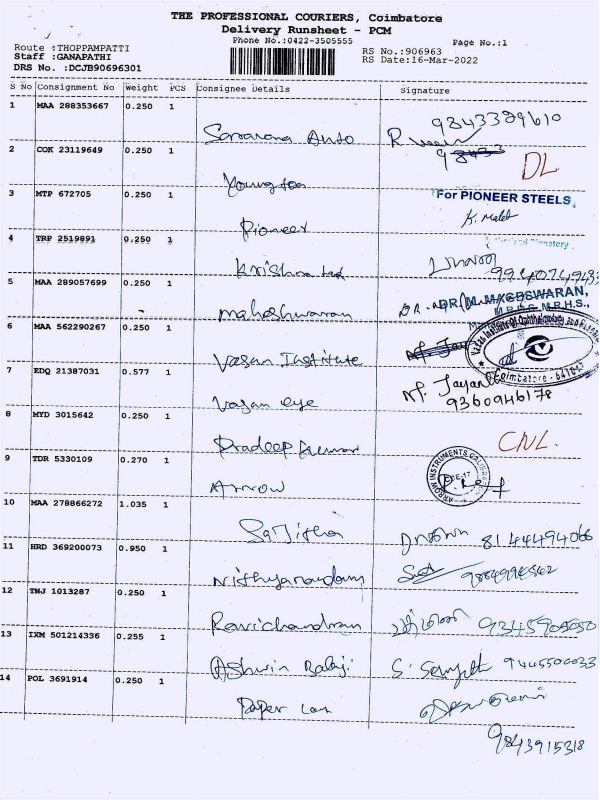 THE PROFESSIONAL COURIERS, Coimbatore
Delivery Runsheet - PCM
Phone No.:0422-3505555
Page No.:1
Route :THOPPAMPATTI
Staff :GANAPATHI
DRS No. :DCJB90696301
RS No.:906963
RS Date:16-Mar-2022
S No Consignment No Weight PCS Consignee Details Signature
1 MAA 288353667 0.250 1
Saravana Auto 9843389610
2 COK 23119649 0.250 1
DL
3 MTP 672705 0.250 1
Pioneer For PIONEER STEELS,
4 TRP 2519891 0.250 1
Krishna
5 MAA 289057699 0.250 1
Maheshwaran DR. M. MAGESWARAN,
6 MAA 562290267 0.250 1
Vasan Institute
7 EDQ 21387031 0.577 1
Vasan eye 9360946178
Coimbatore
8 MYD 3015642 0.250 1
Pradeep Kumar CNL.
9 TDR 5330109 0.270 1
Arrow
ARROW INSTRUMENTS
10 MAA 278866272 1.035 1
Sajitha 8144494066
11 HRD 369200073 0.950 1
Nithyanandam
12 TNJ 1013287 0.250 1
Ravichandran
13 IXM 501214336 0.255 1
Ashwin Balaji 9445500033
14 POL 3691914 0.250 1
Paper
9843915318